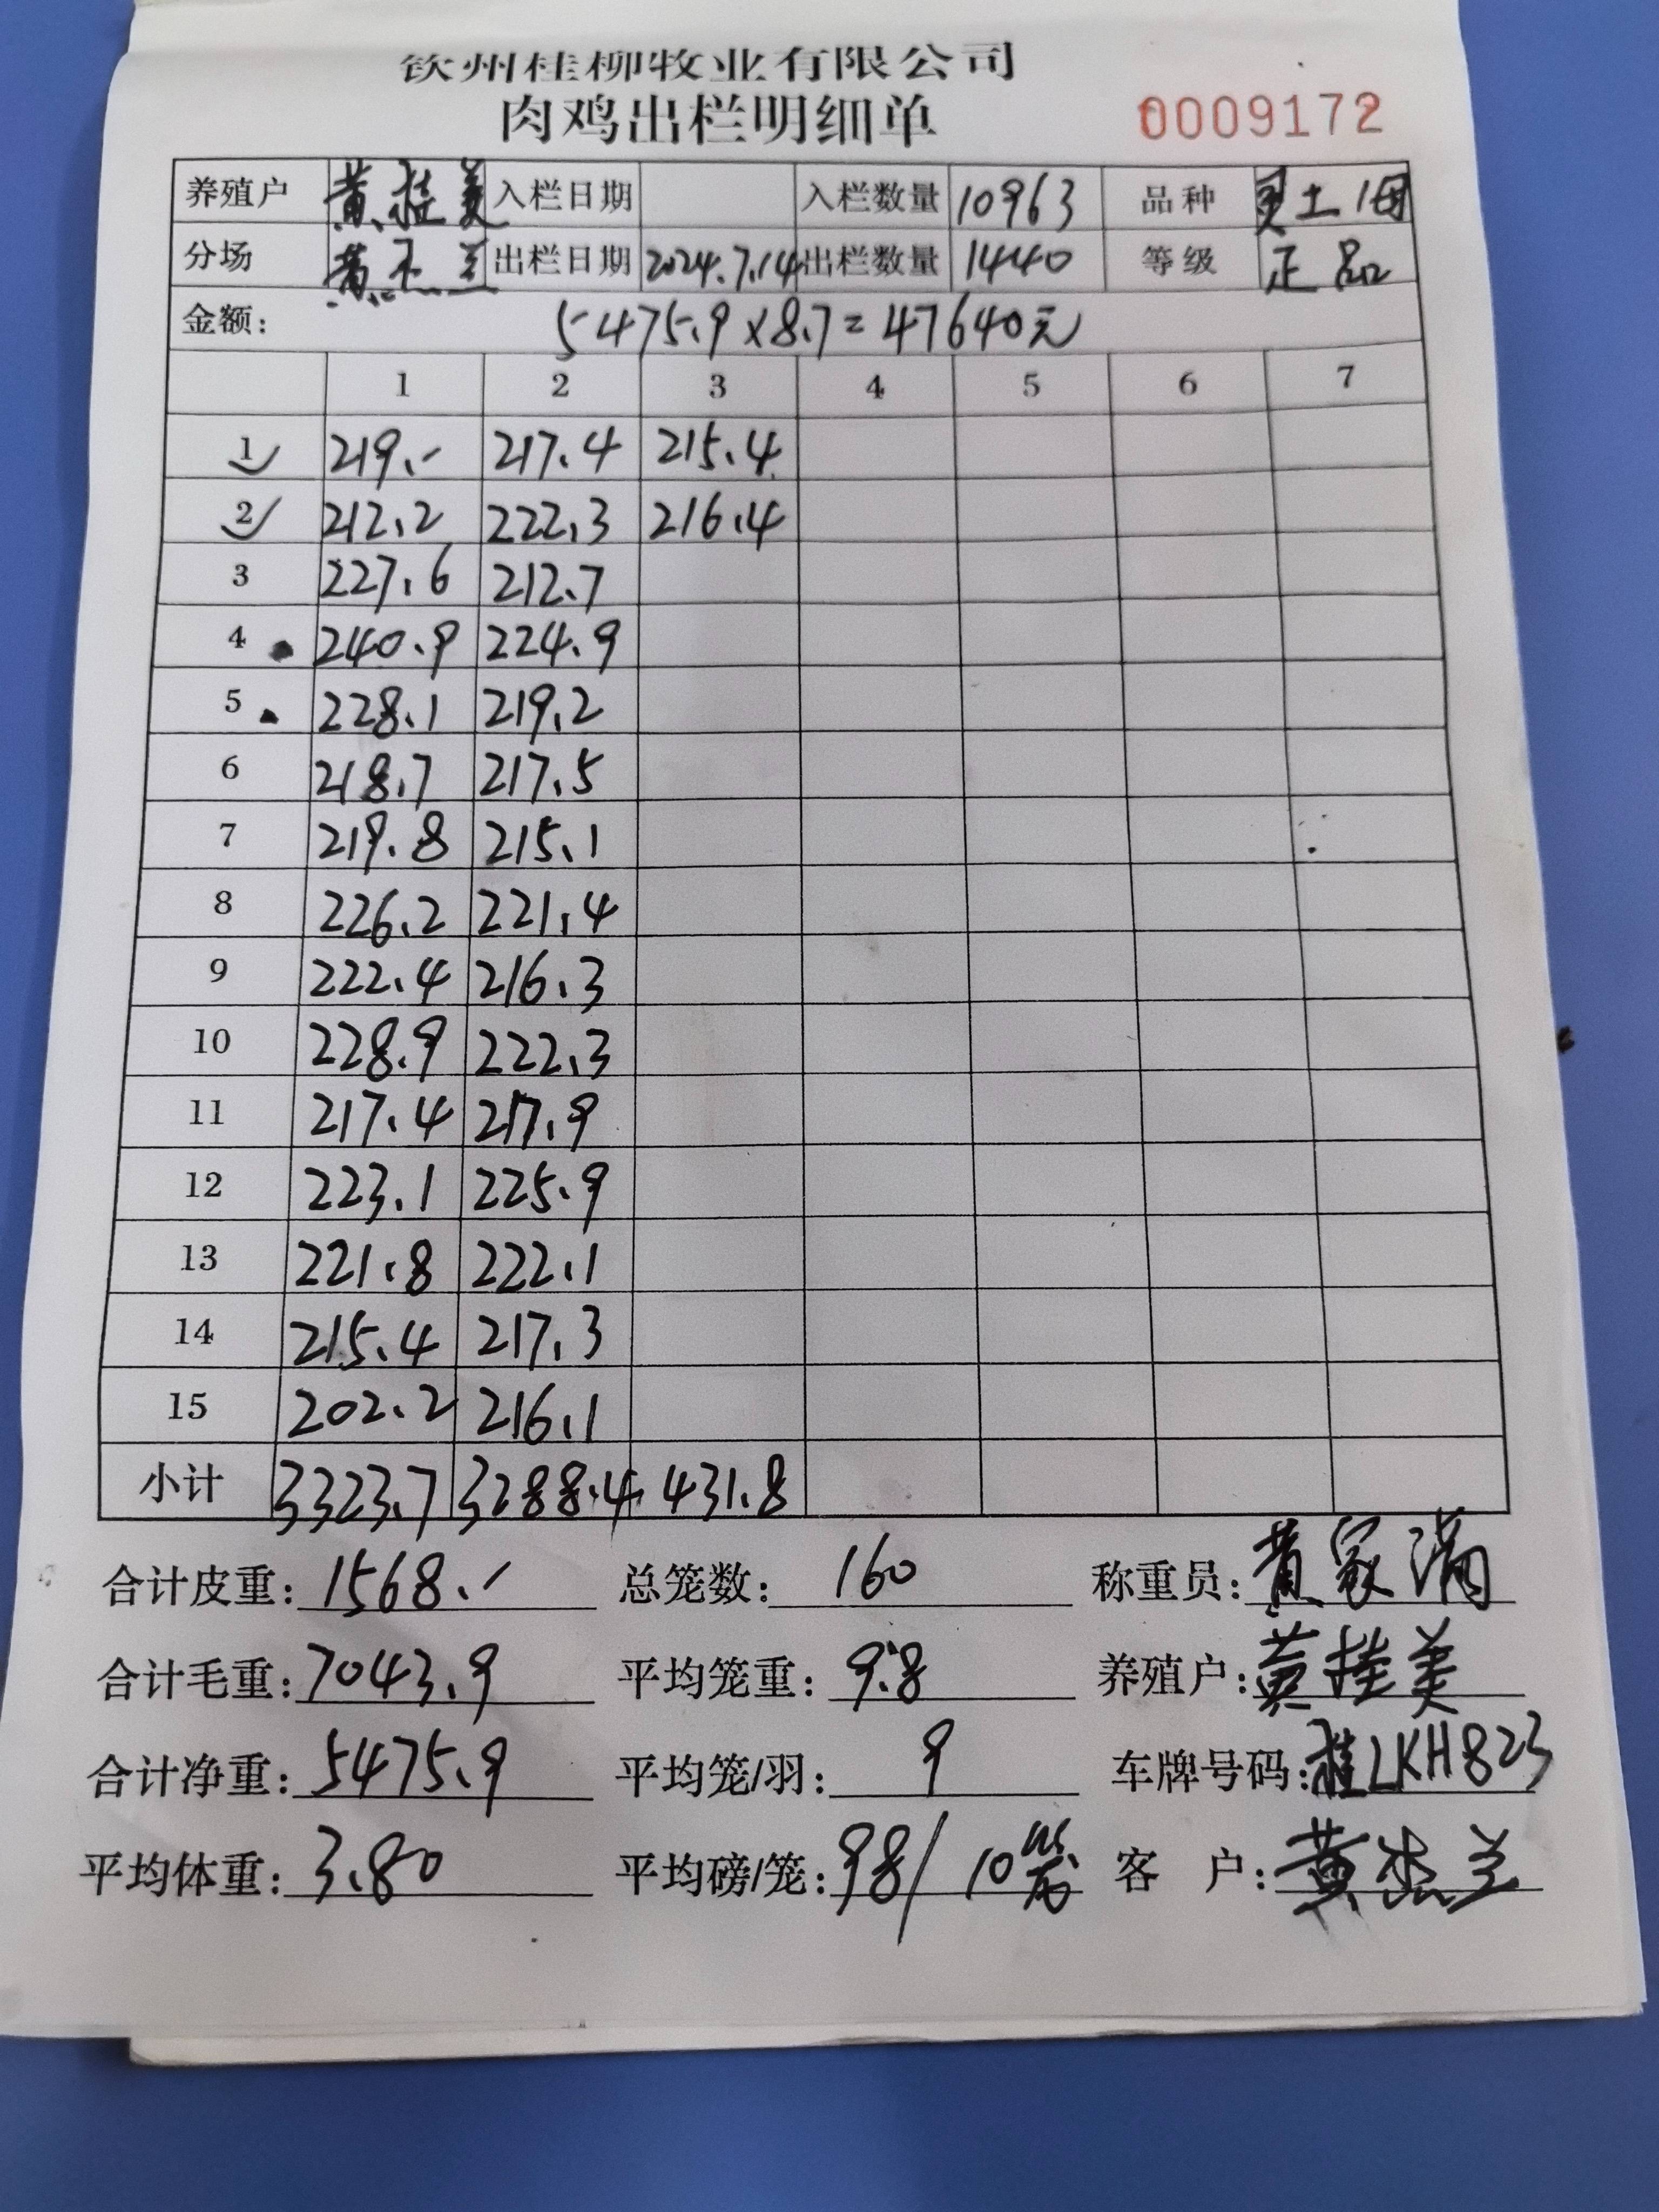 钦州桂柳牧业有限公司
肉鸡出栏明细单 0009172
养殖户 黄桂美 入栏日期 入栏数量 10963 品种 灵土1母
分场 黄杰兰 出栏日期 2024.7.14 出栏数量 1440 等级 正品
金额: 5475.9×8.7=47640元
1 2 3 4 5 6 7
1 219.- 217.4 215.4
2 212.2 222.3 216.4
3 227.6 212.7
4 240.9 224.9
5 228.1 219.2
6 218.7 217.5
7 219.8 215.1
8 226.2 221.4
9 222.4 216.3
10 228.9 222.3
11 217.4 217.9
12 223.1 225.9
13 221.8 222.1
14 215.4 217.3
15 202.2 216.1
小计 3323.7 3288.4 431.8
合计皮重: 1568.- 总笼数: 160 称重员: 黄家满
合计毛重: 7043.9 平均笼重: 9.8 养殖户: 黄桂美
合计净重: 5475.9 平均笼/羽: 9 车牌号码: 桂LKH823
平均体重: 3.80 平均磅/笼: 98/10笼 客 户: 黄杰兰